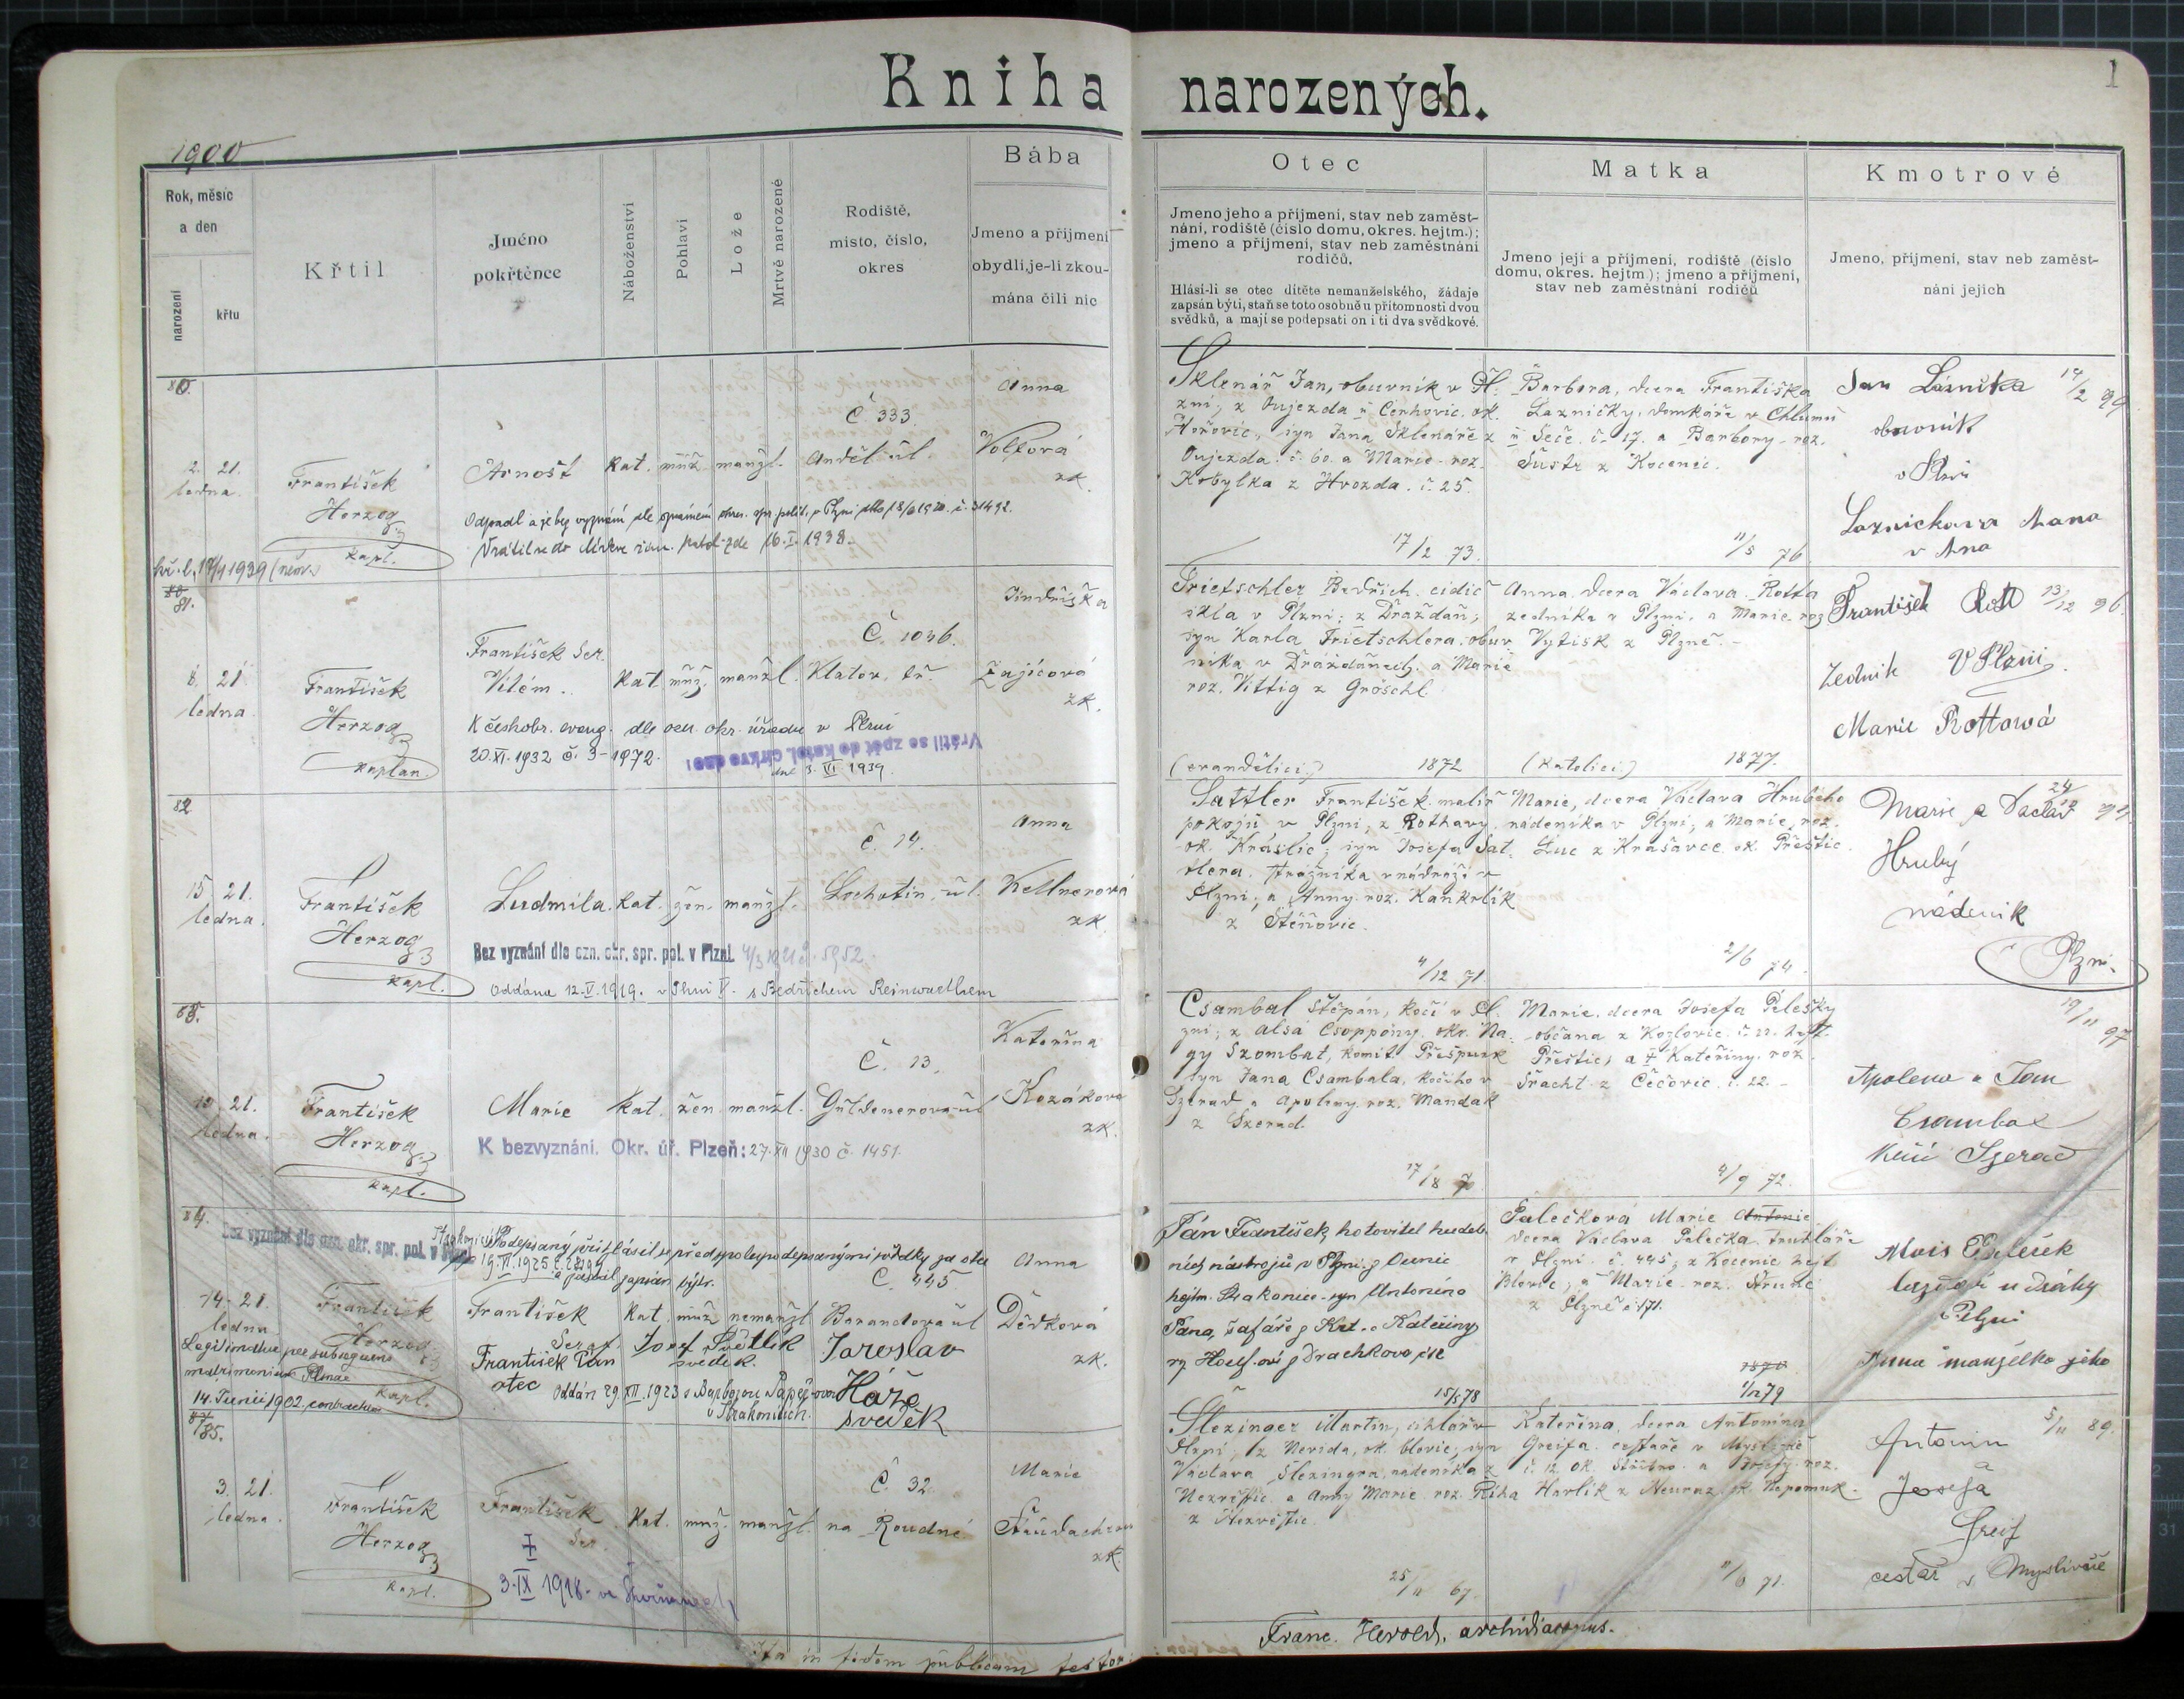 Kniha narozených.
1
1900
Rok, měsíc
a den
narození
křtu
Křtil
Jméno
pokřtěnce
Náboženství
Pohlaví
Lože
Mrtvě narozené
Rodiště,
místo, číslo,
okres
Bába
Jmeno a příjmení
obydlí, je-li zkou-
mána čili nic
Otec
Jmeno jeho a příjmení, stav neb zaměst-
nání, rodiště (číslo domu, okres. hejtm.);
jmeno a příjmení, stav neb zaměstnání
rodičů.
Hlásí-li se otec dítěte nemanželského, žádaje
zapsán býti, staň se toto osobně u přítomnosti dvou
svědků, a mají se podepsati on i ti dva svědkové.
Matka
Jmeno její a příjmení, rodiště (číslo
domu, okres. hejtm.); jmeno a příjmení,
stav neb zaměstnání rodičů
Kmotrové
Jmeno, příjmení, stav neb zaměst-
nání jejich
80.
2. 21.
ledna.
František
Herzog
kapl.
Arnošt
kat. muž. manžl.
Č 333.
Anděl. ul.
Anna
Volfová
zk.
Odpadl a je bez vyznání dle oznámení okres. spr. polit. v Plzni
Vrátil se do církve řím. katol. zde 16.I.1938.
Sklenář Jan, obuvník v Pl-
zni, z Oujezda u Cerhovic. ok.
Hořovic, syn Jana Sklenáře z
Oujezda č. 60. a Marie roz.
Kobylka z Hvozda. č. 25.
17/2 73.
Barbora, dcera Františka
Lazničky, domkáře v Chlumu
č. 17. a Barbory roz.
Šustr z Kocenic.
11/5 76.
Jan 14/2 99
obuvník
v Plzni
81.
8. 21
ledna
František
Herzog
kaplan.
František Ser.
Vilém.
kat. muž. manžl.
Č. 1046.
Klatov. tř.
Jindřiška
Zajícová
zk.
K českobr. evang. dle ozn. okr. úřadu v Plzni
20.XI.1932 č. 3-1972.
Vrátil se zpět do katol. církve dne:
dne 3. VI 1939.
Trietschler Bedřich, cidič
skla v Plzni; z Drážďan;
syn Karla Trietschlera, obuv-
níka v Drážďanech, a Marie
roz. Vittig z Gröschl.
(evandělici) 1872
Anna, dcera Václava Rotta
zedníka v Plzni, a Marie roz.
Vytisk z Plzně.
(katolíci) 1877.
František Rott 13/12 96.
Zedník V Plzni
Marie Rottová
82
15. 21.
ledna.
František
Herzog
kapl.
Ludmila. kat. žen. manžl.
č. 14.
Lochotín. ul.
Anna
Kellnerová
zk.
Bez vyznání dle ozn. okr. spr. pol. v Plzni. 4/3 1921 č. 5952.
Oddána 12.V.1919. v Plzni s Bedřichem
Sattler František malíř
pokojů v Plzni, z Rothavy
ok. Kraslic; syn Josefa Sat-
tlera, strážníka v nádraží v
Plzni, a Anny roz. Kankrlík
z Štěnovic.
4/12 71.
Marie, dcera Václava Hrubého
nádeníka v Plzni, a Marie, roz.
Luc z Krašovce ok. Přeštic.
2/6 74.
Marie a Václav
Hrubý
nádeník
Plzni.
21.
ledna.
František
Herzog
kapl.
Marie kat. žen. manžl.
Č. 13.
Güldenerova ul
Kateřina
Kozáková
zk.
K bezvyznání. Okr. úř. Plzeň: 27.XII 1930 č. 1451.
Csambal Štěpán, kočí v Pl-
zni; z Alsá Csoppóny. okr. Na-
gy Szombat, komit. Prešpurk
syn Jana Csambala, kočího v
Szerad a Apoleny roz. Mandak
z Szerad.
17/8 70
Marie, dcera Josefa Pelešky
občana z Kozlovic č. 22. hejt.
Přeštic; a † Kateřiny roz.
Šracht z Čečovic. č. 22.
4/9 72.
19/11 97
Apolena a Jan
Csambal
84.
Bez vyznání dle ozn. okr. spr. pol. v
19.VI.1925
Podepsaný přihlásil se před spolupodepsanými svědky za otce
a zapsán býti.
14. 21.
ledna
František
Herzog
kapl.
František
Seraf.
kat. muž nemanžl
Č. 445
Barandova ul
Anna
Dědková
zk.
František Pán
otec
Josef Světlík
svědek.
Jaroslav
Háže
svědek
Oddán 29.XII.1923 s Barborou
v Strakonicích.
Legitimatus per subsequens
matrimonium Plznae
14. Junii 1902
Pán František, hotovitel hudeb-
ních nástrojů v Plzni, z
hejtm. Strakonice - syn Antonína
Pána, šafáře z a Kateřiny
15/5 78
Palečková Marie Antonie
dcera Václava Palečka truhláře
v Plzni č. 445; z Kocenic hejt
Blovic; a Marie roz.
z Plzně č. 171.
1/12 79
Alois
u dráhy
v Plzni
Anna manželka jeho
85.
3. 21.
ledna.
František
Herzog
kapl.
František
Ser.
Kat. muž. manžl.
Č. 32.
na Roudné
Marie
zk.
†
3.IX 1918. ve
Šlezinger Martin, cihlář v
Plzni, ok. Blovic, syn
Václava Šlezingra, nádeníka z
Nezvěstic a Anny Marie roz. Říha
z Nezvěstic.
25/11 67.
Kateřina, dcera Antonína
Greifa, cestáře v
č. 12. ok. Stříbro a roz.
Harlík z Neuraz ok. Nepomuk.
11/6 71.
5/11 89.
Antonín
Josefa
Greif
cestář v Myslívě
Ita in fidem publicam testor:
Franc. Herold, archidiaconus.